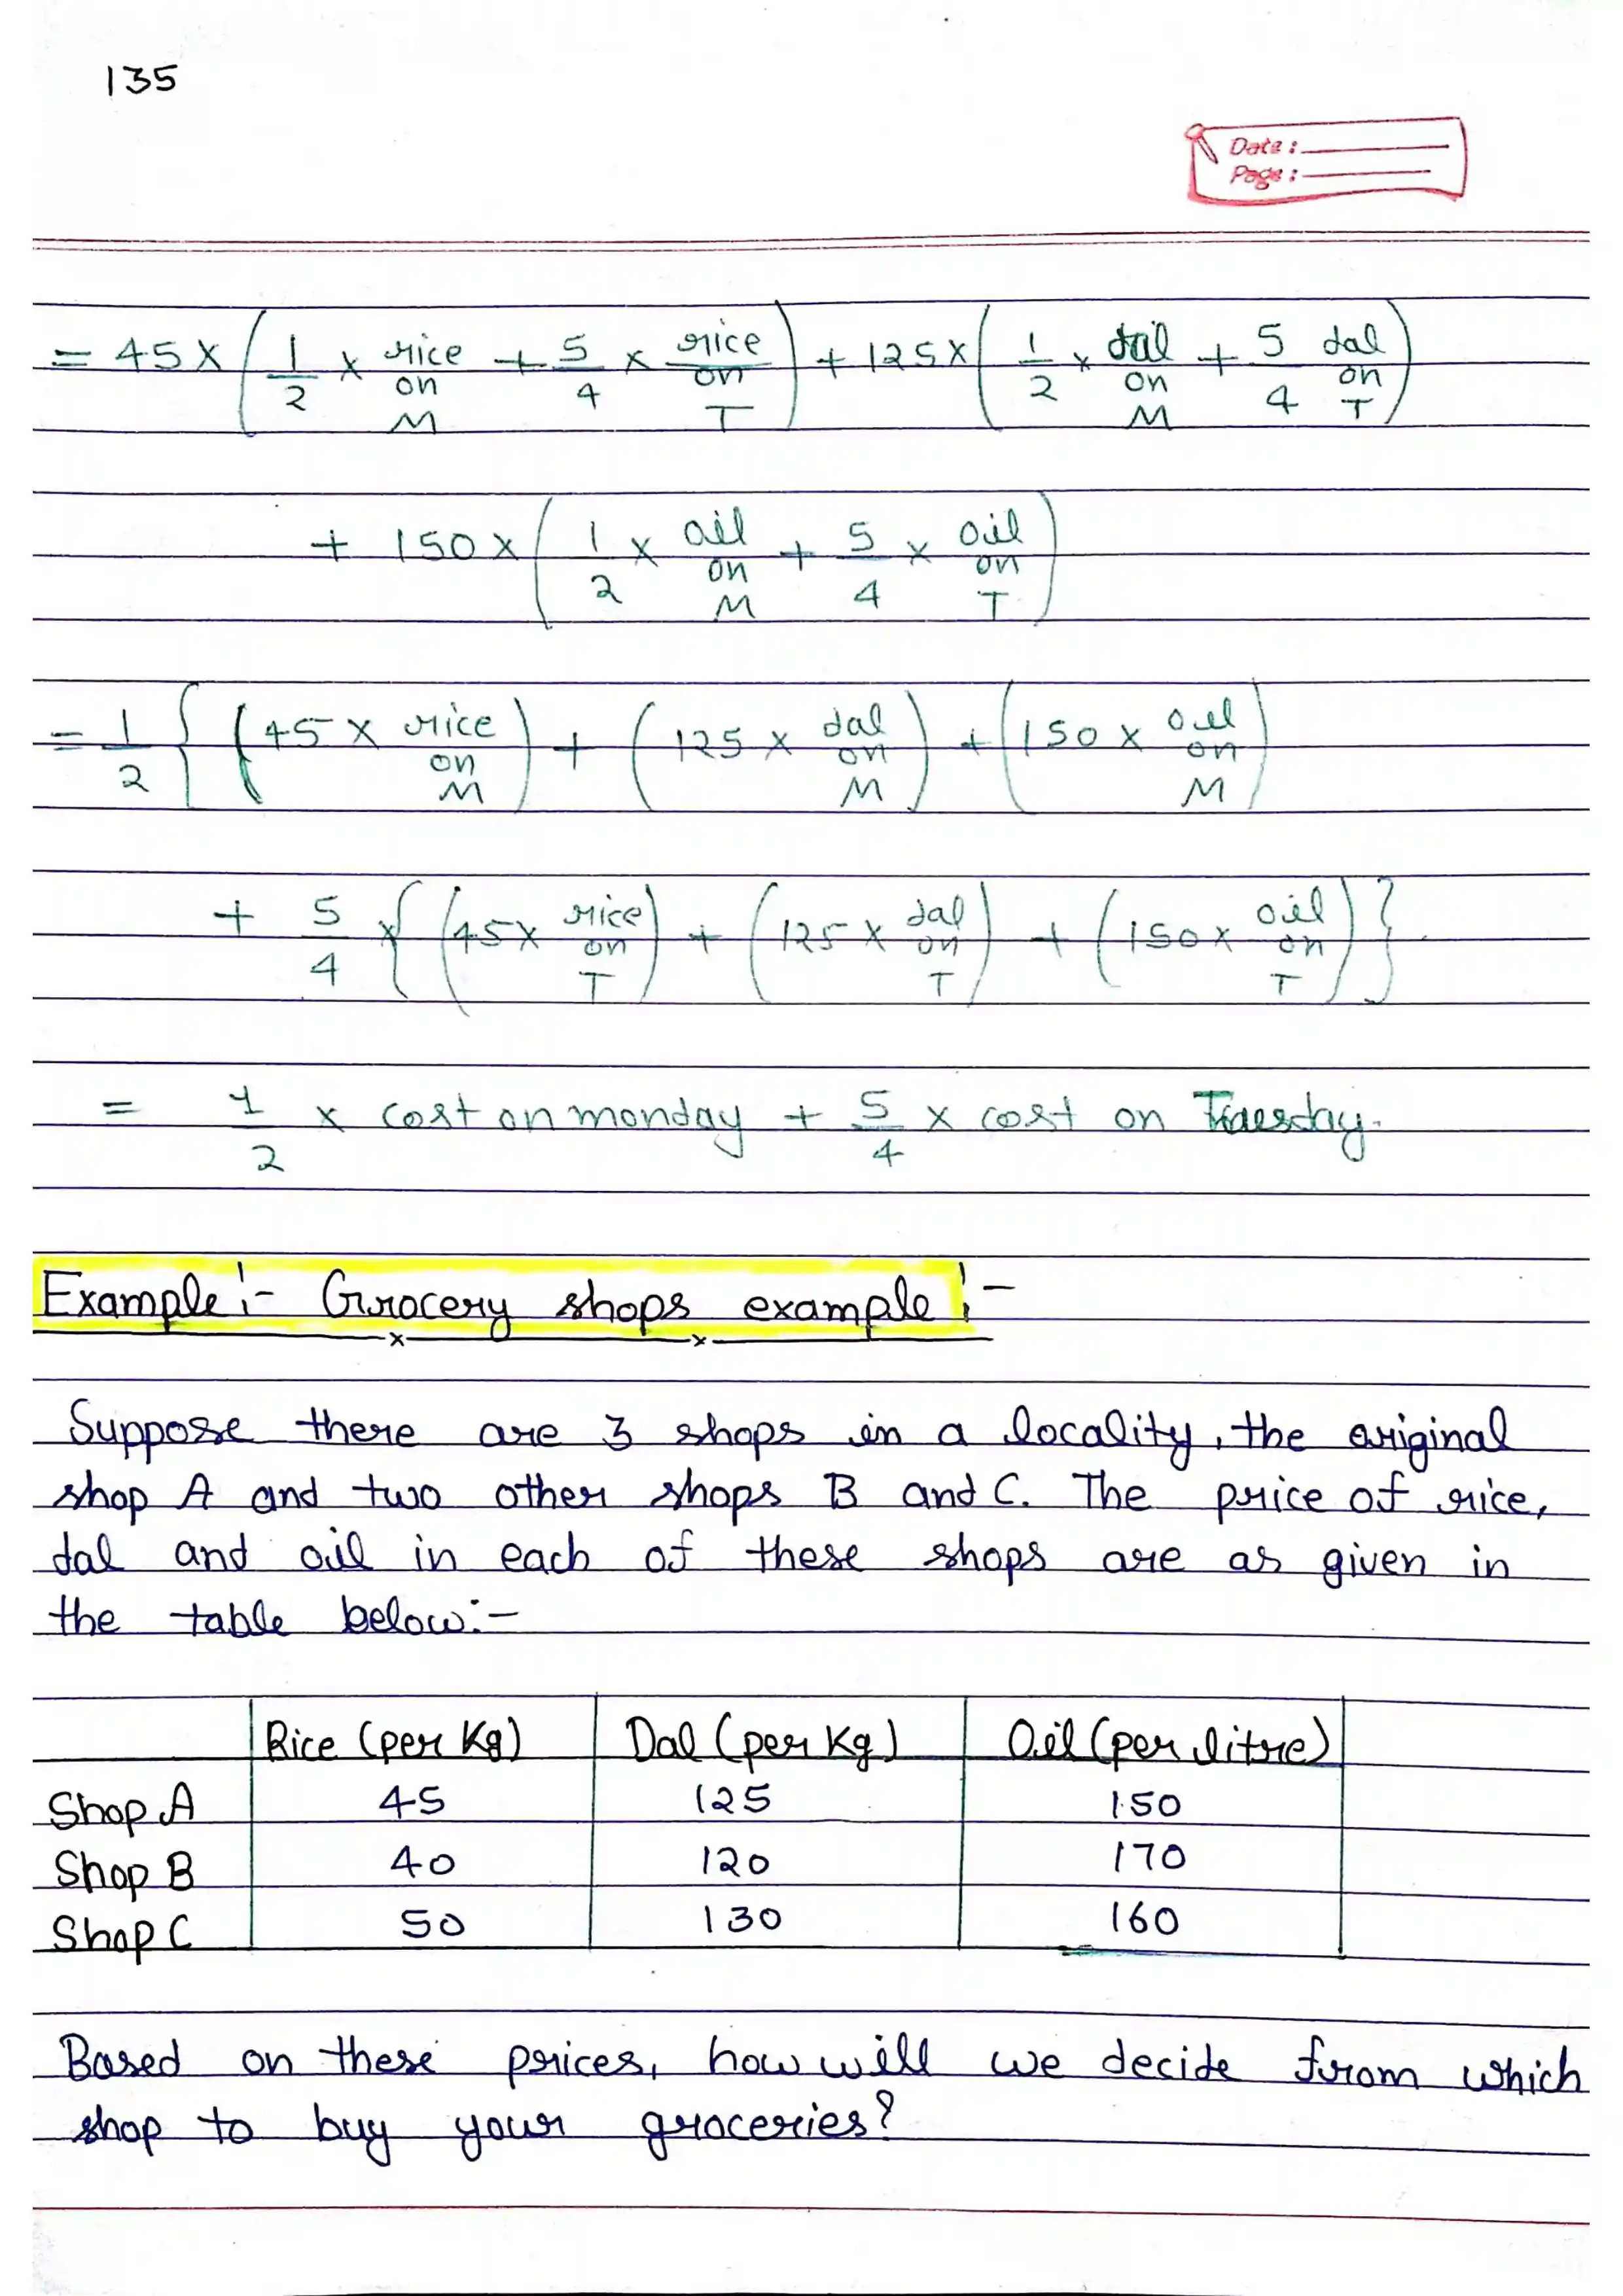 135
Date :
Page :
= 45 × ( 1/2 × rice on M + 5/4 × rice on T ) + 125 × ( 1/2 × dal on M + 5/4 dal on T )
+ 150 × ( 1/2 × oil on M + 5/4 × oil on T )
= 1/2 { ( 45 × rice on M ) + ( 125 × dal on M ) + ( 150 × oil on M )
+ 5/4 × { ( 45 × rice on T ) + ( 125 × dal on T ) + ( 150 × oil on T ) }
= 1/2 × cost on monday + 5/4 × cost on Tuesday.
Example :- Grocery shops example :-
Suppose there are 3 shops in a locality, the original
shop A and two other shops B and C. The price of rice,
dal and oil in each of these shops are as given in
the table below:-
Rice (per Kg) Dal (per Kg) Oil (per litre)
Shop A 45 125 150
Shop B 40 120 170
Shop C 50 130 160
Based on these prices, how will we decide from which
shop to buy your groceries?